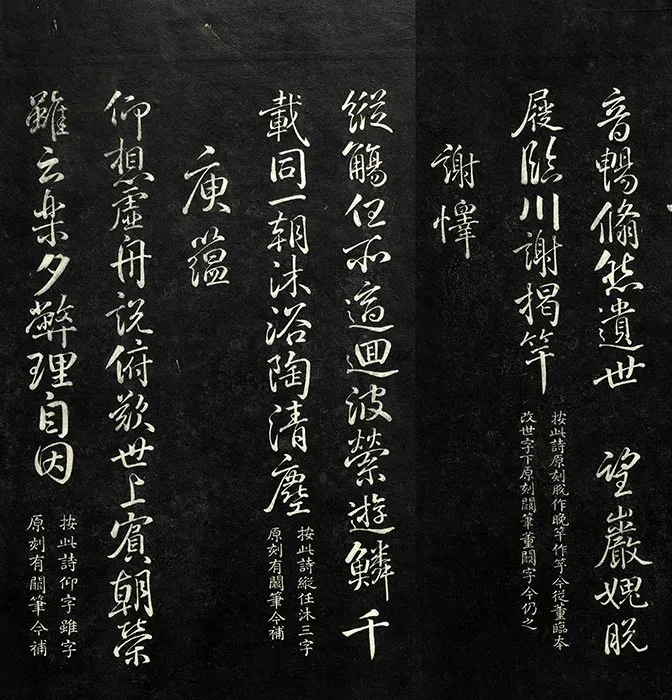 音暢翛然遺世 望巖愧脫
屣臨川謝揭竿
按此詩原刻脫作晚竿作竽今從董臨本
改世字下原刻闕筆董闕字今仍之
謝懌
縱觴任所適迴波縈遊鱗千
載同一朝沐浴陶清塵
按此詩縱任沐三字
原刻有闕筆今補
庾蘊
仰想虛舟說俯歎世上賓朝榮
雖云樂夕弊理自因
按此詩仰字雖字
原刻有闕筆今補